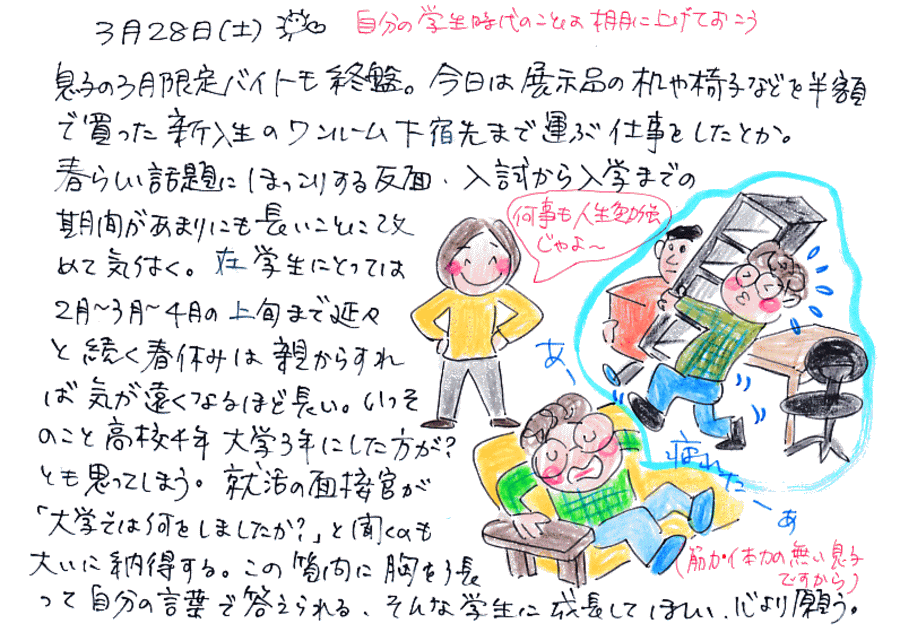 3月28日(土)
自分の学生時代のことは棚に上げておこう
息子の3月限定バイトも終盤。今日は展示品の机や椅子などを半額
で買った新入生のワンルーム下宿先まで運ぶ仕事をしたとか。
春らしい話題にほっこりする反面、入試から入学までの
期間があまりにも長いことに改
めて気付く。在学生にとっては
2月〜3月〜4月の上旬まで延々
と続く春休みは親からすれ
ば気が遠くなるほど長い。いっそ
のこと高校4年大学3年にした方が?
とも思ってしまう。就活の面接官が
「大学では何をしましたか?」と聞くのも
大いに納得する。この質問に胸を張
って自分の言葉で答えられる、そんな学生に成長してほしい、心より願う。
何事も人生勉強
じゃよ〜
あ〜
疲れたーぁ
(筋力・体力の無い息子
ですから)